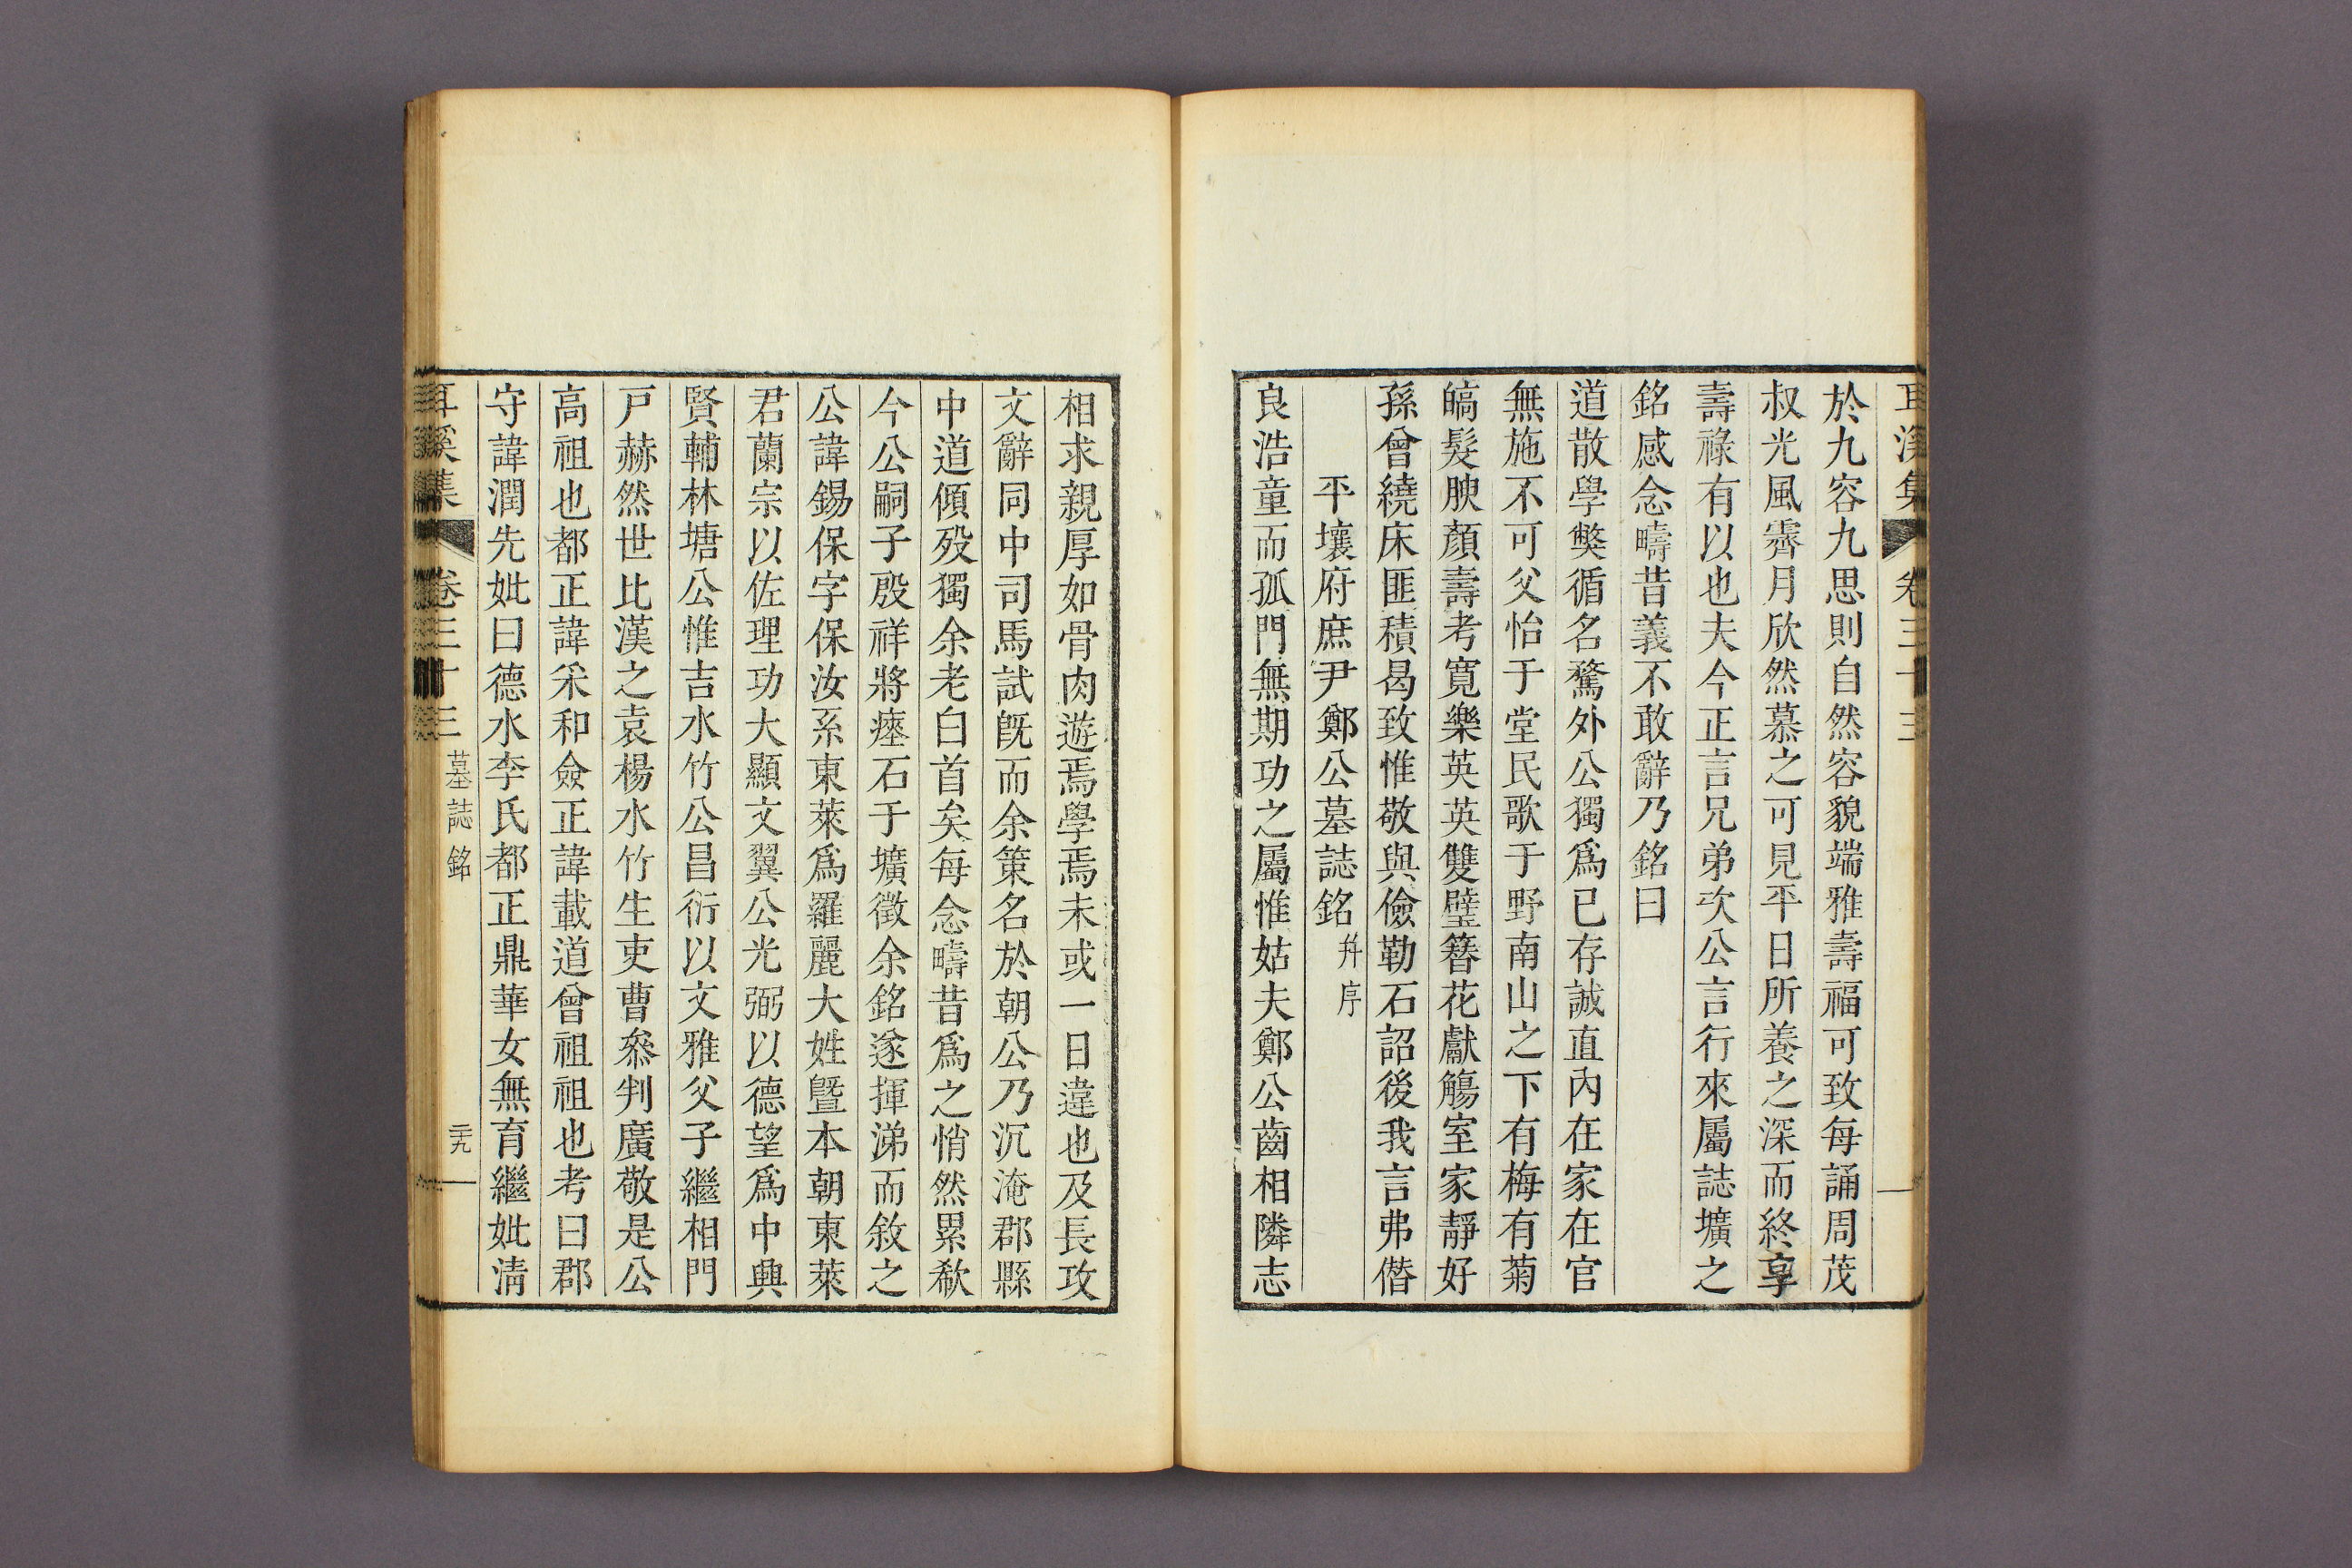 耳溪集 卷三十三
於九容九思則自然容貌端雅壽福可致每誦周茂
叔光風霽月欣然慕之可見平日所養之深而終享
壽祿有以也夫今正言兄弟次公言行來屬誌壙之
銘感念疇昔義不敢辭乃銘曰
道散學獘循名騖外公獨爲已存誠直內在家在官
無施不可父怡于堂民歌于野南山之下有梅有菊
皜髮腴顏壽考寬樂英英雙璧簪花獻觴室家靜好
孫曾繞床匪積曷致惟敬與儉勒石詔後我言弗僭
平壤府庶尹鄭公墓誌銘 幷序
良浩童而孤門無期功之屬惟姑夫鄭公齒相隣志
相求親厚如骨肉遊焉學焉未或一日違也及長攻
文辭同中司馬試旣而余策名於朝公乃沉淹郡縣
中道傾歿獨余老白首矣每念疇昔爲之悄然累欷
今公嗣子殷祥將瘞石于壙徵余銘遂揮涕而敘之
公諱錫保字保汝系東萊爲羅麗大姓曁本朝東萊
君蘭宗以佐理功大顯文翼公光弼以德望爲中興
賢輔林塘公惟吉水竹公昌衍以文雅父子繼相門
戶赫然世比漢之袁楊水竹生吏曹叅判廣敬是公
高祖也都正諱采和僉正諱載道曾祖祖也考曰郡
守諱潤先妣曰德水李氏都正鼎華女無育繼妣淸
耳溪集 卷三十三 墓誌銘 二十九